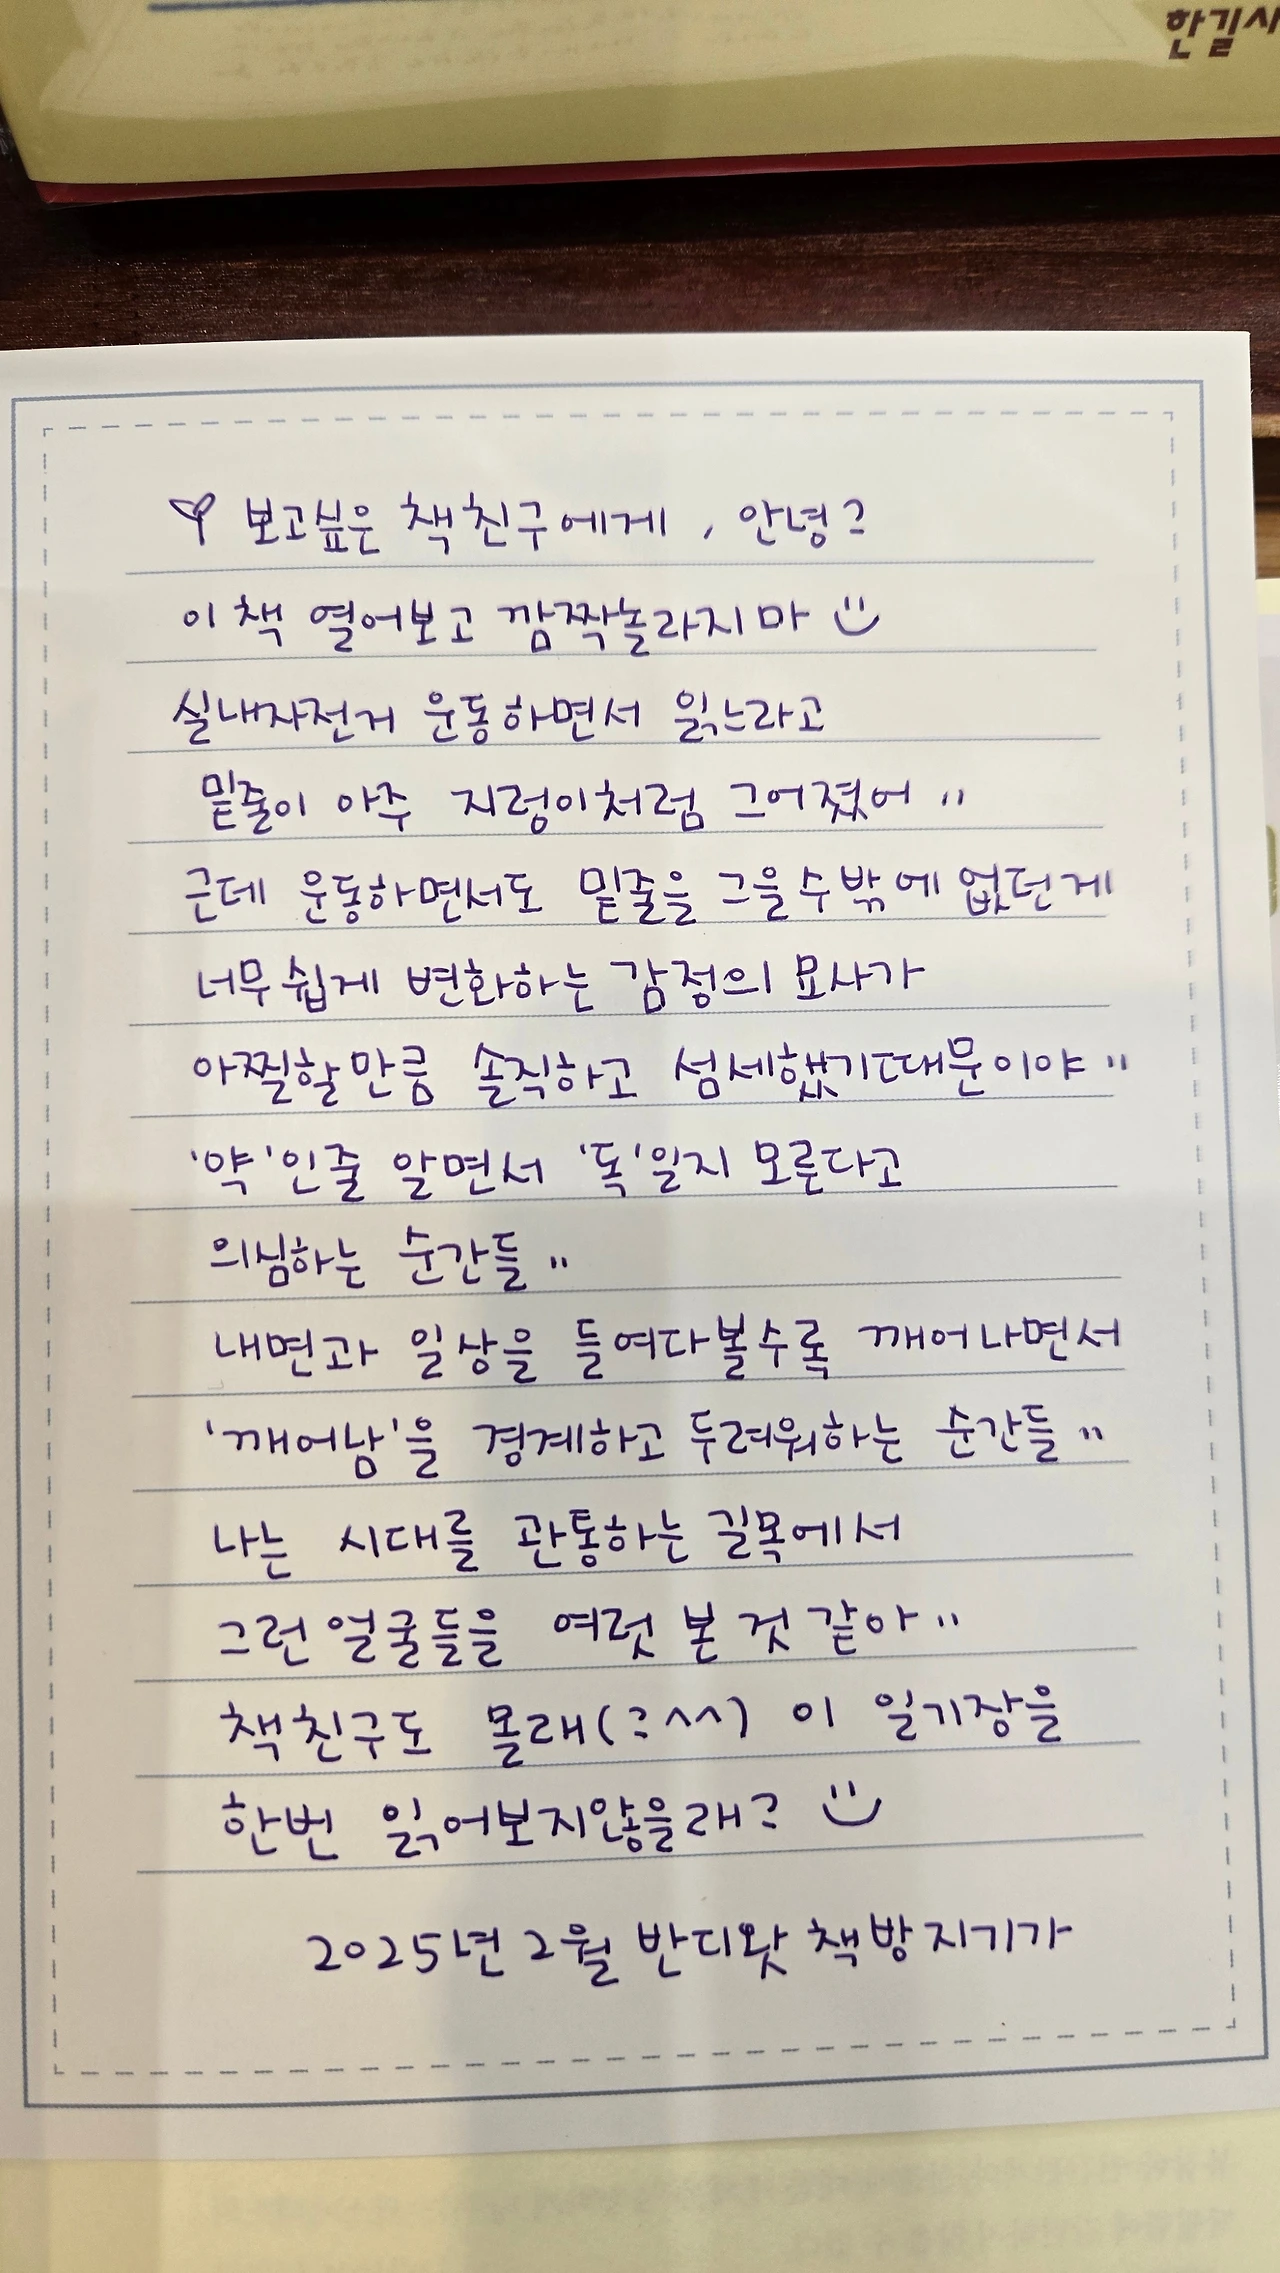 한길사
보고싶은 책친구에게, 안녕?
이 책 열어보고 깜짝놀라지마
실내자전거 운동하면서 읽느라고
밑줄이 아주 지렁이처럼 그어졌어..
근데 운동하면서도 밑줄을 그을수밖에 없던게
너무 쉽게 변화하는 감정의 묘사가
아찔할만큼 솔직하고 섬세했기때문이야..
'약'인줄 알면서 '독'일지 모른다고
의심하는 순간들..
내면과 일상을 들여다볼수록 깨어나면서
'깨어남'을 경계하고 두려워하는 순간들..
나는 시대를 관통하는 길목에서
그런 얼굴들을 여럿 본 것 같아..
책친구도 몰래(?^^) 이 일기장을
한번 읽어보지않을래?
2025년 2월 반디왓 책방지기가